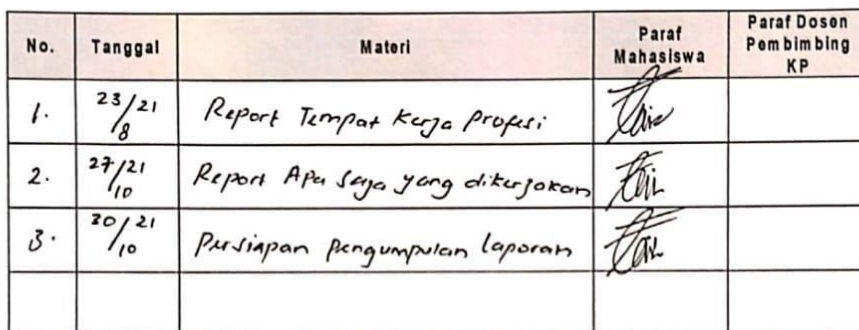 No. Tanggal Materi Paraf Mahasiswa Paraf Dosen Pembimbing KP
1. 23/21/8 Report Tempat Kerja Profesi
2. 27/21/10 Report Apa Saja yang dikerjakan
3. 30/21/10 Persiapan pengumpulan laporan